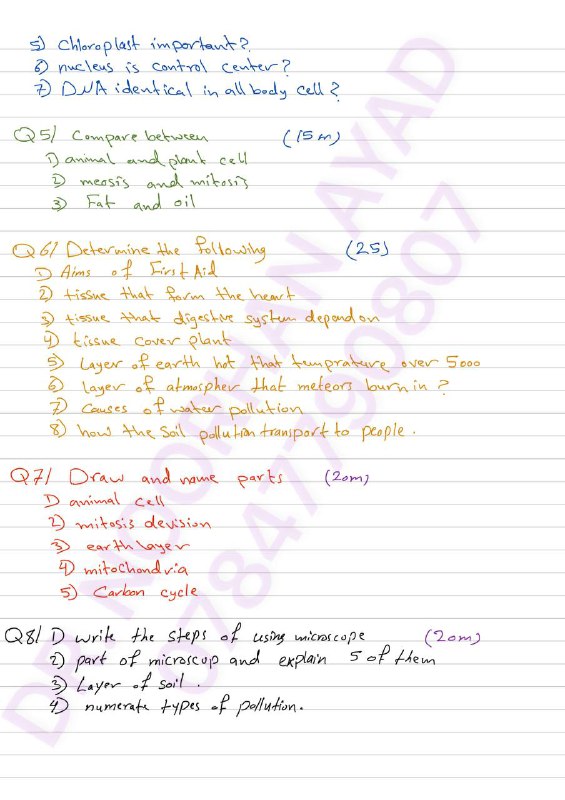 5) Chloroplast important?
6) nucleus is control center?
7) DNA identical in all body cell?
Q5/ Compare between (15m)
1) animal and plant cell
2) meosis and mitosis
3) Fat and oil
Q6/ Determine the following (25)
1) Aims of First Aid
2) tissue that form the heart
3) tissue that digestive system depend on
4) tissue cover plant
5) Layer of earth hot that temprature over 5000
6) layer of atmospher that meteors burn in?
7) Causes of water pollution
8) how the soil pollution transport to people.
Q7/ Draw and name parts (20m)
1) animal cell
2) mitosis devision
3) earth layer
4) mitochondria
5) Carbon cycle
Q8/ 1) write the steps of using microscope (20m)
2) part of microscop and explain 5 of them
3) Layer of soil.
4) numerate types of pollution.
DR NOORHAN AYAD
07847790807